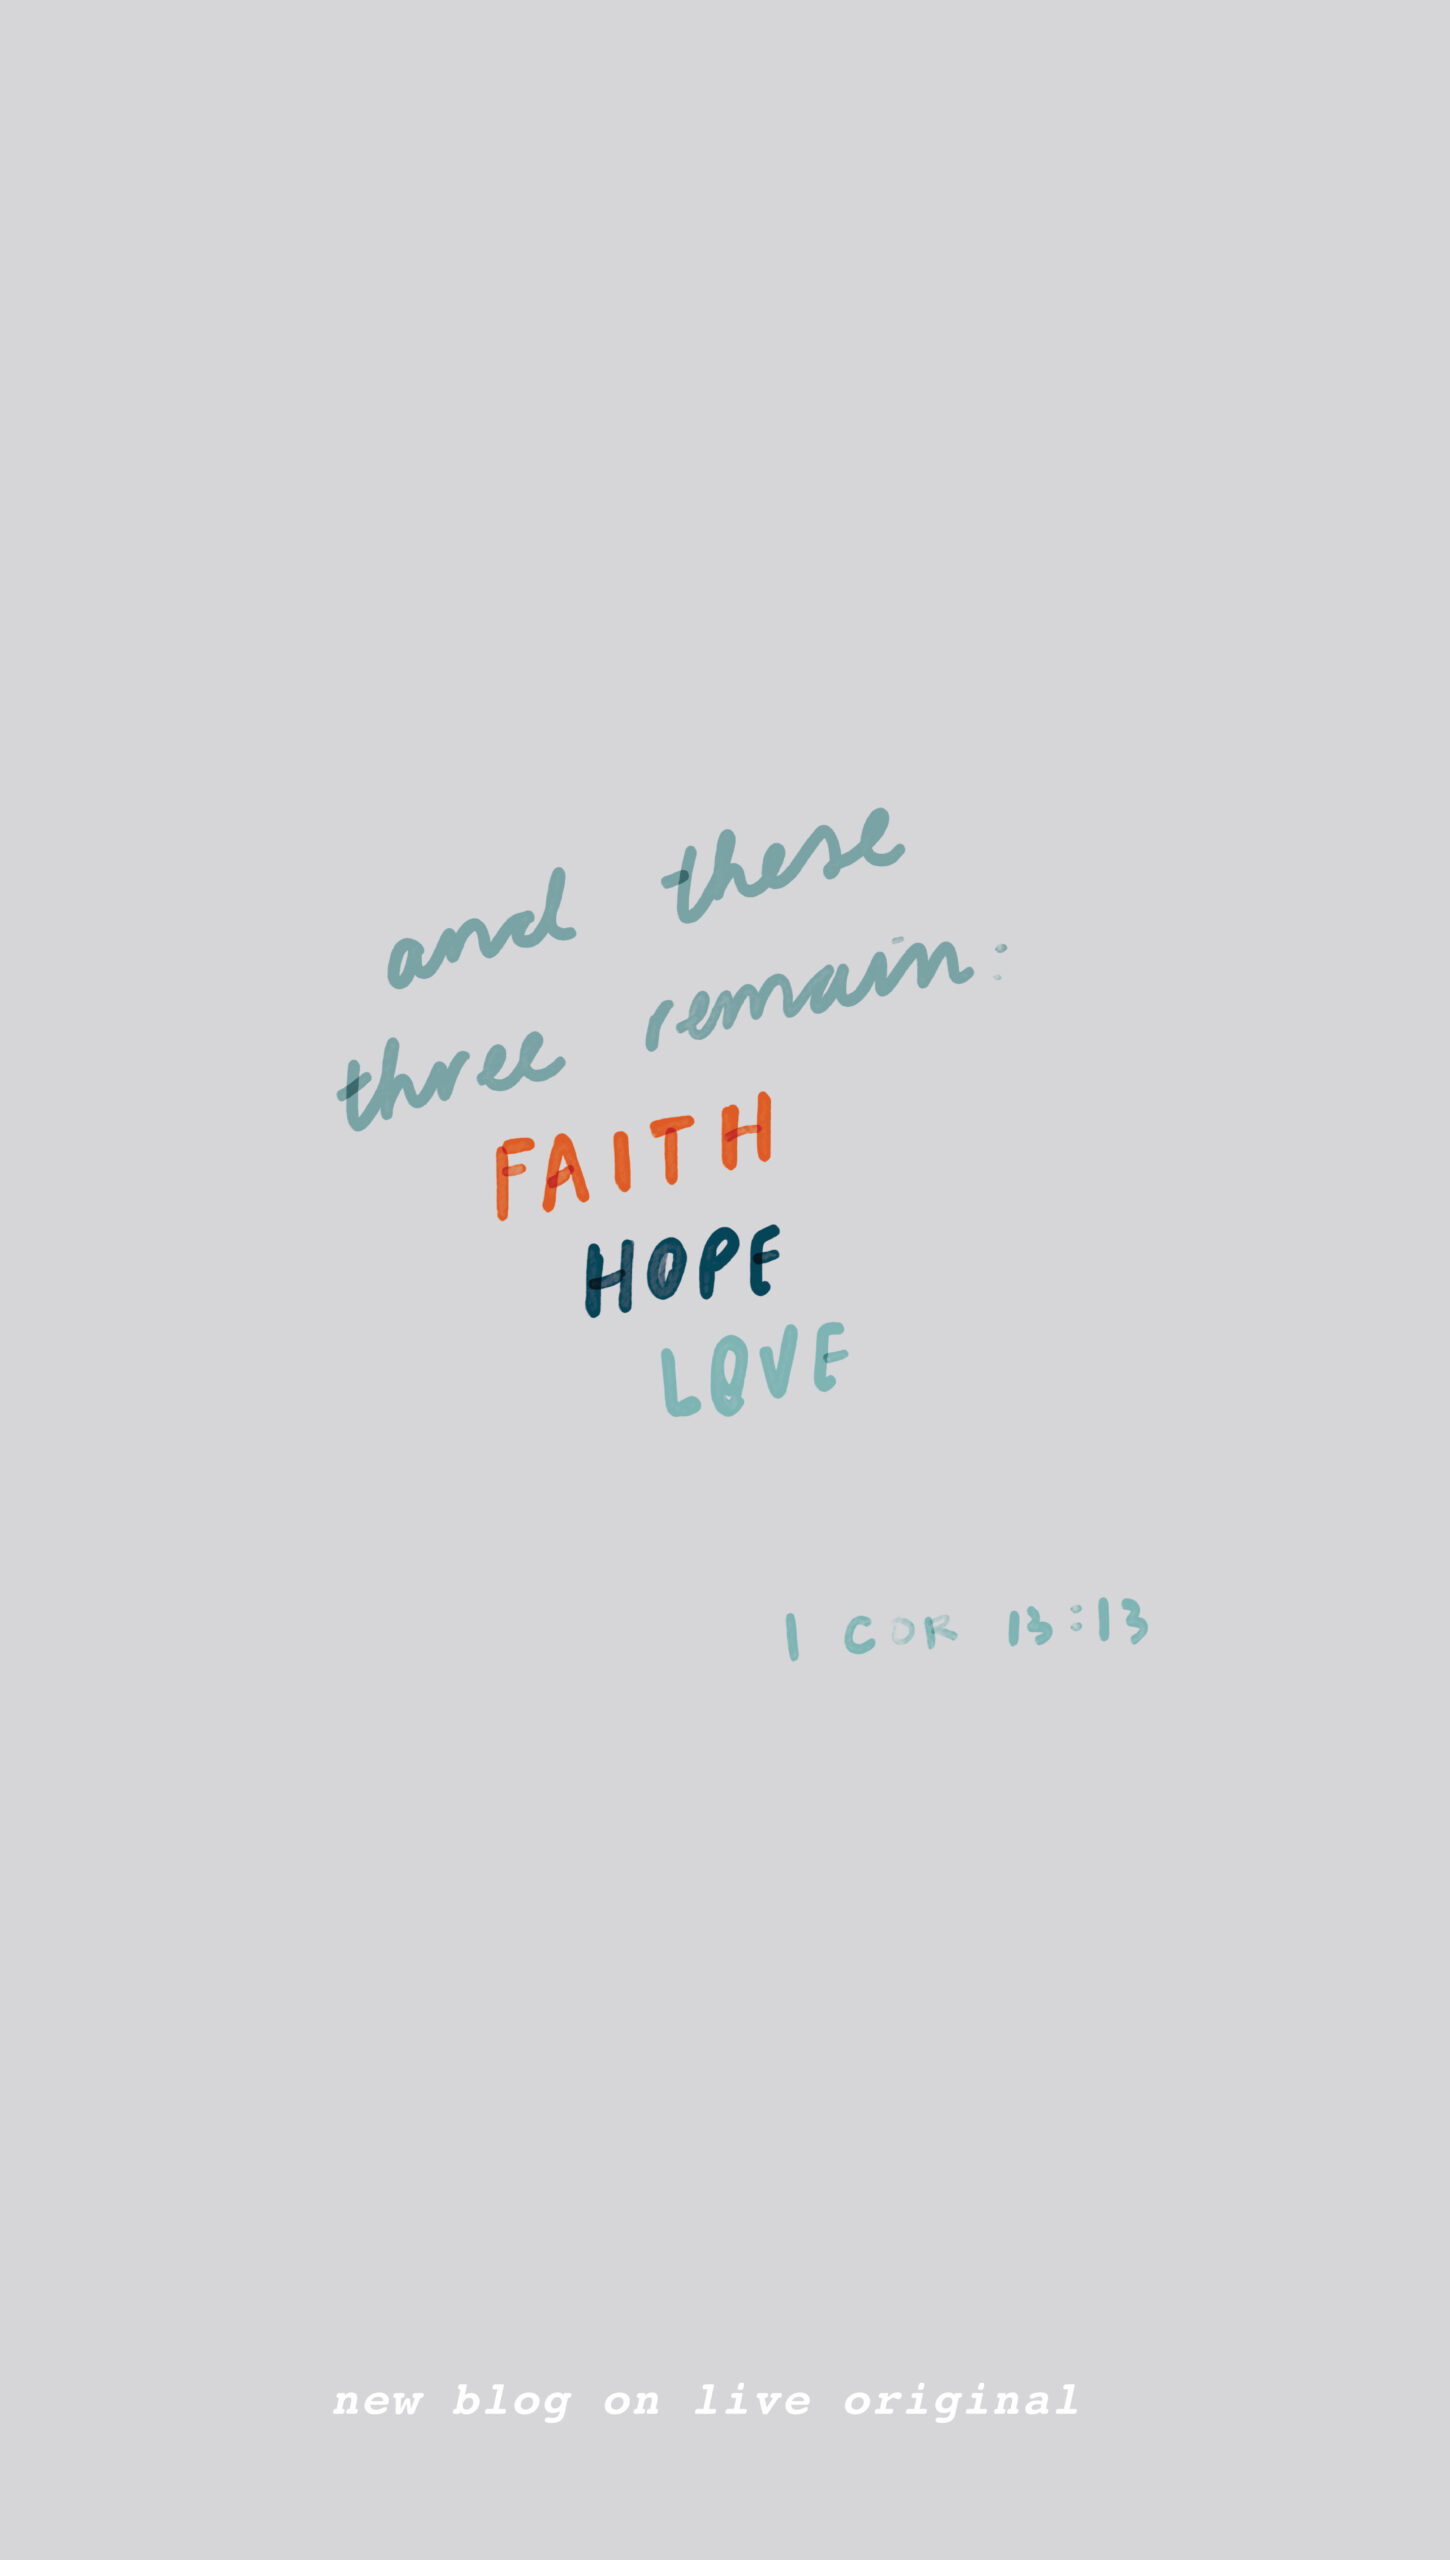 and these
three remain:
FAITH
HOPE
LOVE
1 COR 13:13
new blog on live original